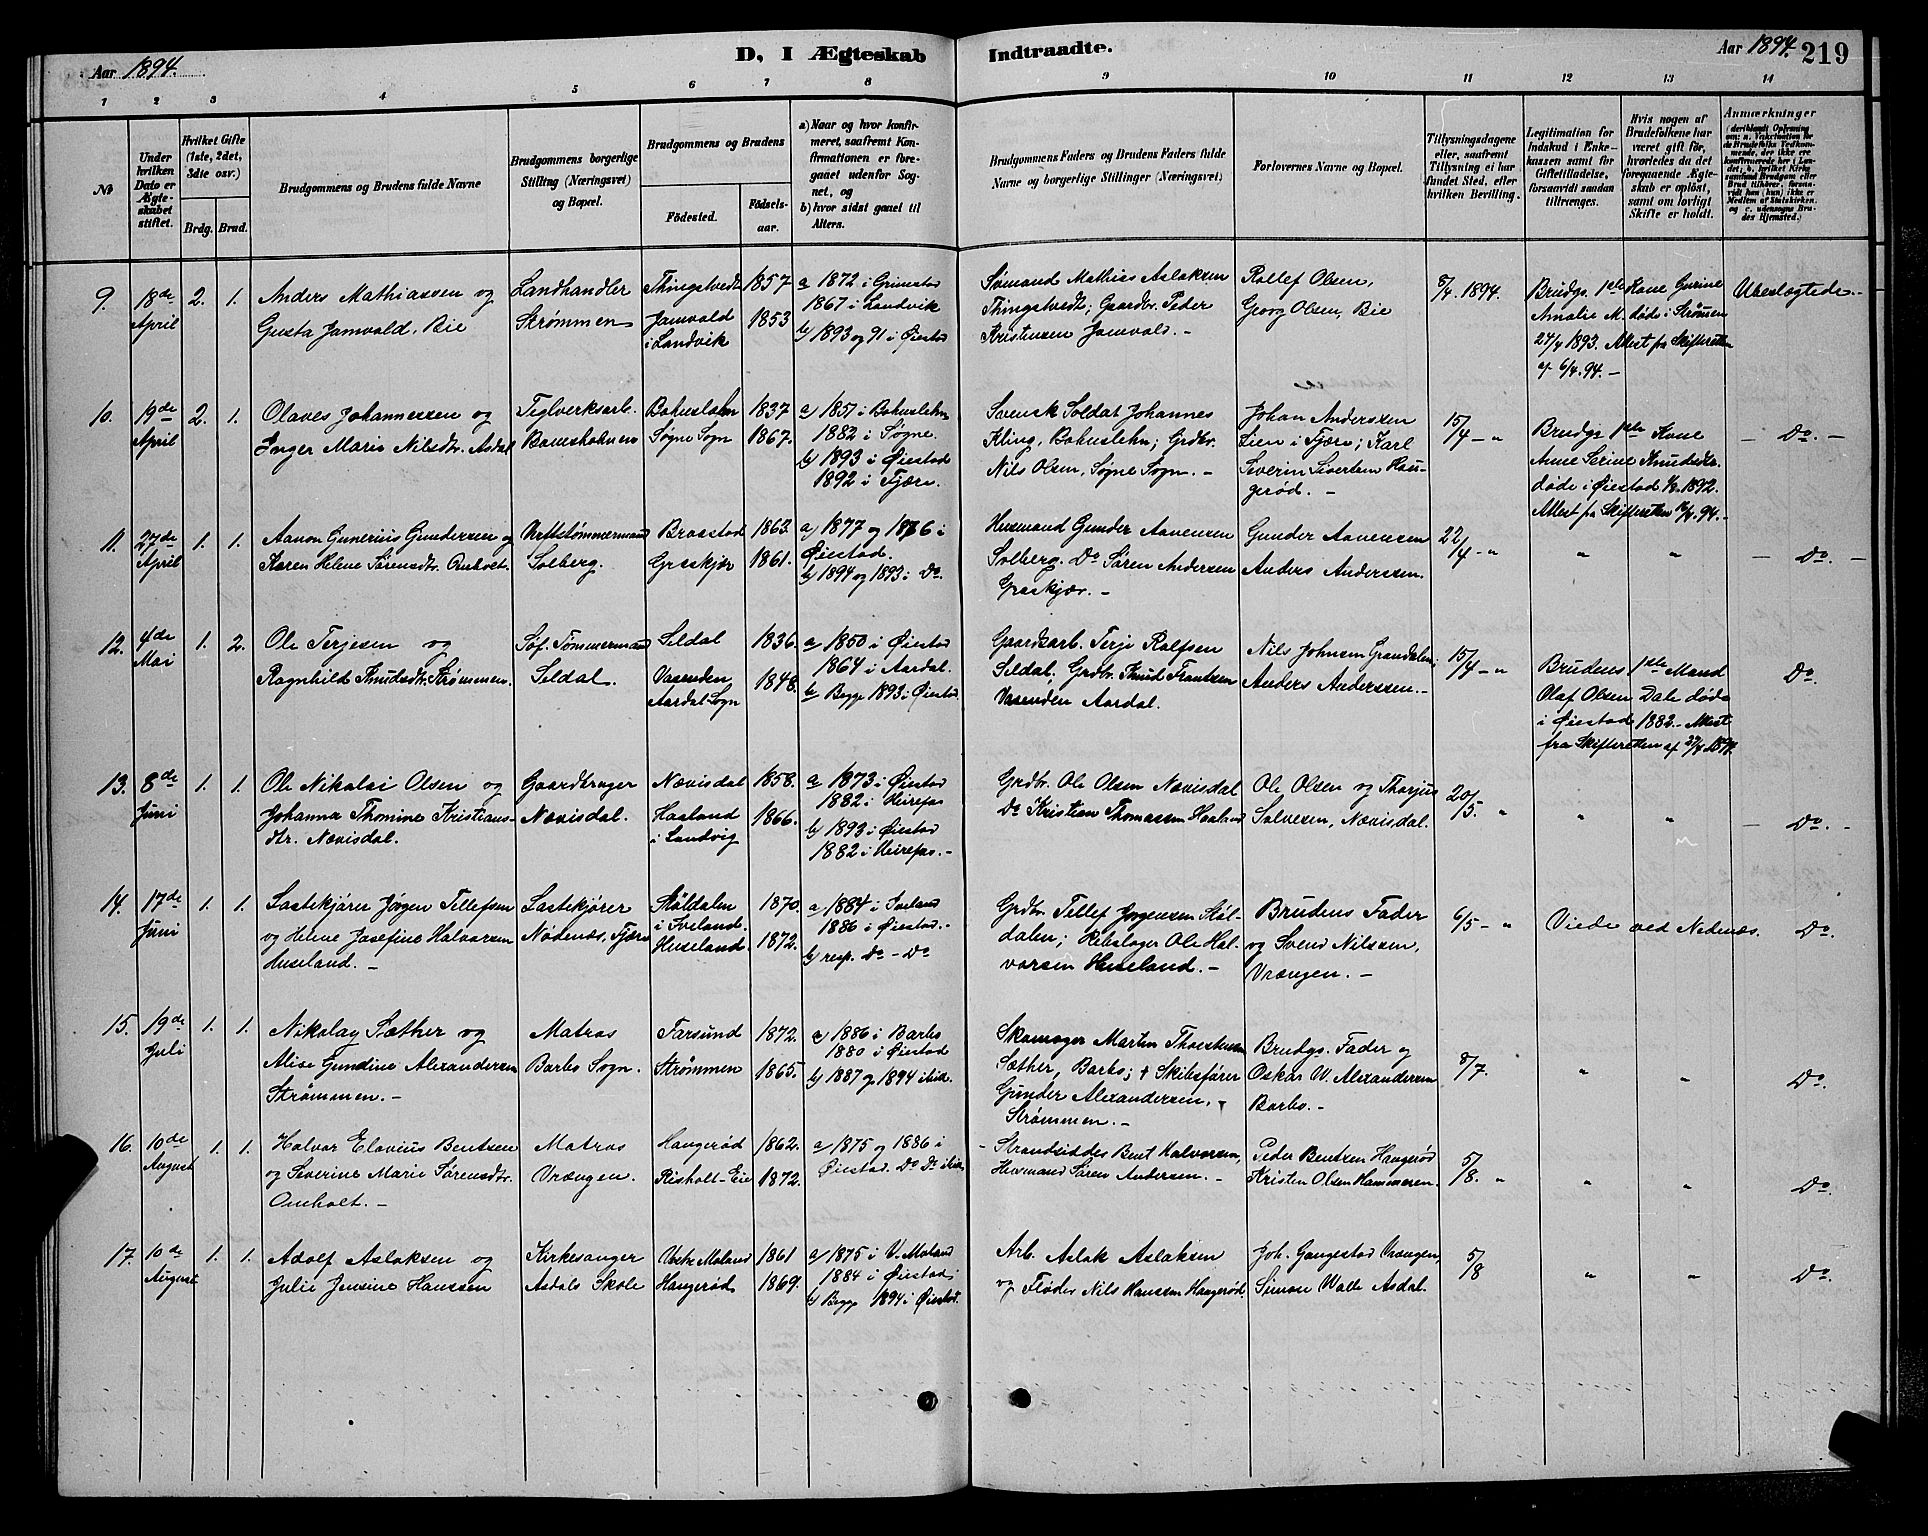 Aar 1894.
D, I Ægteskab
Indtraadte.
Aar 1894. 219
1 2 3 4 5 6 7 8 9 10 11 12 13 14
No
Under
hvilken
Dato er
Ægte-
skabet
stiftet.
Hvilket Gifte
(1ste, 2det,
3die osv.)
Brdg. Brud.
Brudgommens og Brudens fulde Navne
Brudgommens borgerlige
Stilling (Næringsvei)
og Bopæl.
Brudgommens og Brudens
Födested.
Födsels-
aar.
a) Naar og hvor konfir-
meret, saafremt Kon-
firmationen er fore-
gaaet udenfor Sog-
net, og
b) hvor sidst gaaet til
Alters.
Brudgommens Faders og Brudens Faders fulde
Navne og borgerlige Stillinger (Næringsvei)
Forlovernes Navne og Bopæl.
Tillysningsdagene
eller, saafremt
Tillysning ei har
fundet Sted, efter
hvilken Bevilling.
Legitimation for
Indskud i Enke-
kassen samt for
Giftetilladelse,
forsaavidt saadan
tiltrænges.
Hvis nogen af
Brudefolkene har
været gift för,
hvorledes da det
foregaaende Ægte-
skab er oplöst,
samt om lovligt
Skifte er holdt.
Anmærkninger
9. 18de April 2. 1.
Anders Mathiassen og
Gusta Jamvold, Bie
Landhandler
Strømmen
Thingstvedt 1857
Jamvold
i Landvik 1853
a 1872 i Grimstad
1867 i Landvik
b) 1893 og 91 i Øiestad
Sømand Mathias Aslaksen
Thingstvedt; Gaardbr. Peder
Kristensen Jamvold. -
Rollef Olsen,
Georg Olsen, Bie
8/4 1894.
Brudgs. 1ste Kone Gurine
Amalie M. døde i Strømmen
24/4 1893. Attest fra Skifteretten
af 6/4. 94. -
Ubeslægtede. -
10. 19de April 2. 1.
Olaves Johannessen og
Inger Marie Nilsdtr. Asdal
Teglverksarb.
Bomsholmen
Bohuslehn 1837
Søgne Sogn 1867.
a) 1851 i Bohuslehn
1882 i Søgne.
b) 1893 i Øiestad
1892 i Fjære.
Svensk Soldat Johannes
Kling, Bohuslehn; Grdbr.
Nils Olsen, Søgne Sogn. -
Johan Anderssen
Lien i Fjære; Karl
Severin Sivertsen Hau-
gerød. -
15/4 - "
Brudgs. 1ste Kone
Anne Serine Knudsdtr.
døde i Øiestad 1892.
Attest fra Skifteretten 94. -
- Do. -
11. 27de April 1. 1.
Aanon Gunerius Gundersen og
Karen Helene Sørensdtr. Omholt.
Solberg.
Brosstad 1863.
Græskjær 1861.
a) 1877 og 1876 i
Øiestad.
b) 1894 og 1893 i Do.
Husmand Gunder Aanensen
Solberg. Do Sören Andersen
Græskjær. -
Gunder Aanensen
Anders Anderssen.
22/4 - "
" "
- Do. -
12. 4de Mai 1. 2.
Ole Terjesen og
Ragnhild Knudsdtr. Strømmen.
Søf. Tømmermand
Seldal.
Seldal 1836.
Vasenden
Aardal Sogn 1848.
a 1850 i Øiestad
1864 i Aardal.
b Begge 1893 i Øiestad.
Gaardsarb. Terje Rolfsen
Seldal, Grdbr. Knud Frantzen
Vasenden Aardal.
Nils Johnsen Grandalen;
Anders Anderssen. -
15/4 - "
Brudens 1ste Mand
Olaf Olsen Dale døde
i Øiestad 1882. - Attest
fra Skifteretten af
Do.
13. 8de Juni 1. 1.
Ole Nikolai Olsen og
Johanna Thomine Kristians-
dtr. Nævisdal.
Gaardbruger
Nævisdal.
Nævisdal 1858.
Haaland
i Landvig 1866.
a 1873 i Øiestad
1882 i Heirefos
b) 1893 i Øiestad
1882 i Heirefos. -
Grdbr. Ole Olsen Nævisdal
Do Kristian Thomassen Haaland
Ole Olsen og Thorjus
Salvesen, Nævisdal.
20/5. "
" "
- Do. -
14. 17de Juni 1. 1.
Lastekjører Jørgen Tellefsen
og Helene Josefine Halvorsen
Huseland. -
Lastekjører
Nødenæs. Fjære
Støldalen
i Iveland. 1870.
Huseland. 1872.
a 1884 i Iveland
1886 i Øiestad. -
b) resp. Do - Do
Grdbr. Tellef Jørgensen Støl-
dalen; Rebslager Ole Hal-
vorsen Huseland. -
Brudens Fader
og Svend Nilssen,
Vrængen. -
6/5 - "
Viede ved Nedenæs.
Do.
15. 19de Juli 1. 1.
Nikolay Sæther og
Alise Gundine Alexandersen
Strømmen. -
Matros
Barbo Sogn.
Farsund 1872.
Strømmen 1865.
a) 1886 i Barbo
1880 i Øiestad
b) 1887 og 1894 ibid.
Skomager Martin Thorstensen
Sæther, Barbo; + Skibsfører
Gunder Alexandersen,
Strømmen. -
Brudgs. Fader og
Oskar W. Alexandersen
Barbo. -
8/7.
" "
Do.
16. 10de August 1. 1.
Halvor Elovius Bentsen
og Severine Marie Sørensdtr.
Omholt. -
Matros
Vrængen.
Haugerød 1862.
Risholt-Eie 1872.
a 1875 og 1886 i
Øiestad. Do Do ibid.
- Strandsidder Bent Halvorsen,
Husmand Søren Andersen. -
Peder Bentzen Haugerød
Kristen Olsen Kammeren.
5/8. "
" "
Do.
17. 10de August 1. 1.
Adolf Aslaksen og
Julie Jensine Hanssen
Kirkesanger
Asdals Skole
Vestre Moland 1861
Haugerød 1869.
a) 1875 i V. Moland
1884 i Øiestad;
b) Begge 1894 i Øiestad.
Arb. Aslak Aslaksen
og Fløder Nils Hanssen Haugerød.
Joh. Gangestad Vrængen,
Simon Walle Asdal.
5/8
" "
Do.